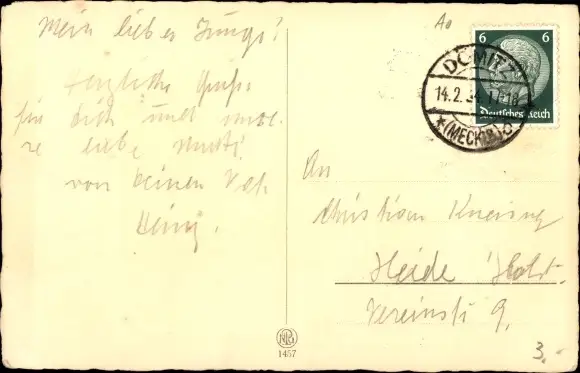 Mein lieber Junge!
Herzliche Grüße
für dich und unse-
re liebe Mutti
von deinem
Heinz.
Ao
6 6
Deutsches Reich
DÖMITZ
14.2.34. 17-18
*(MECKLB)c
An
Christian
Heide Holst.
Vereinstr 9.
3.-
1457